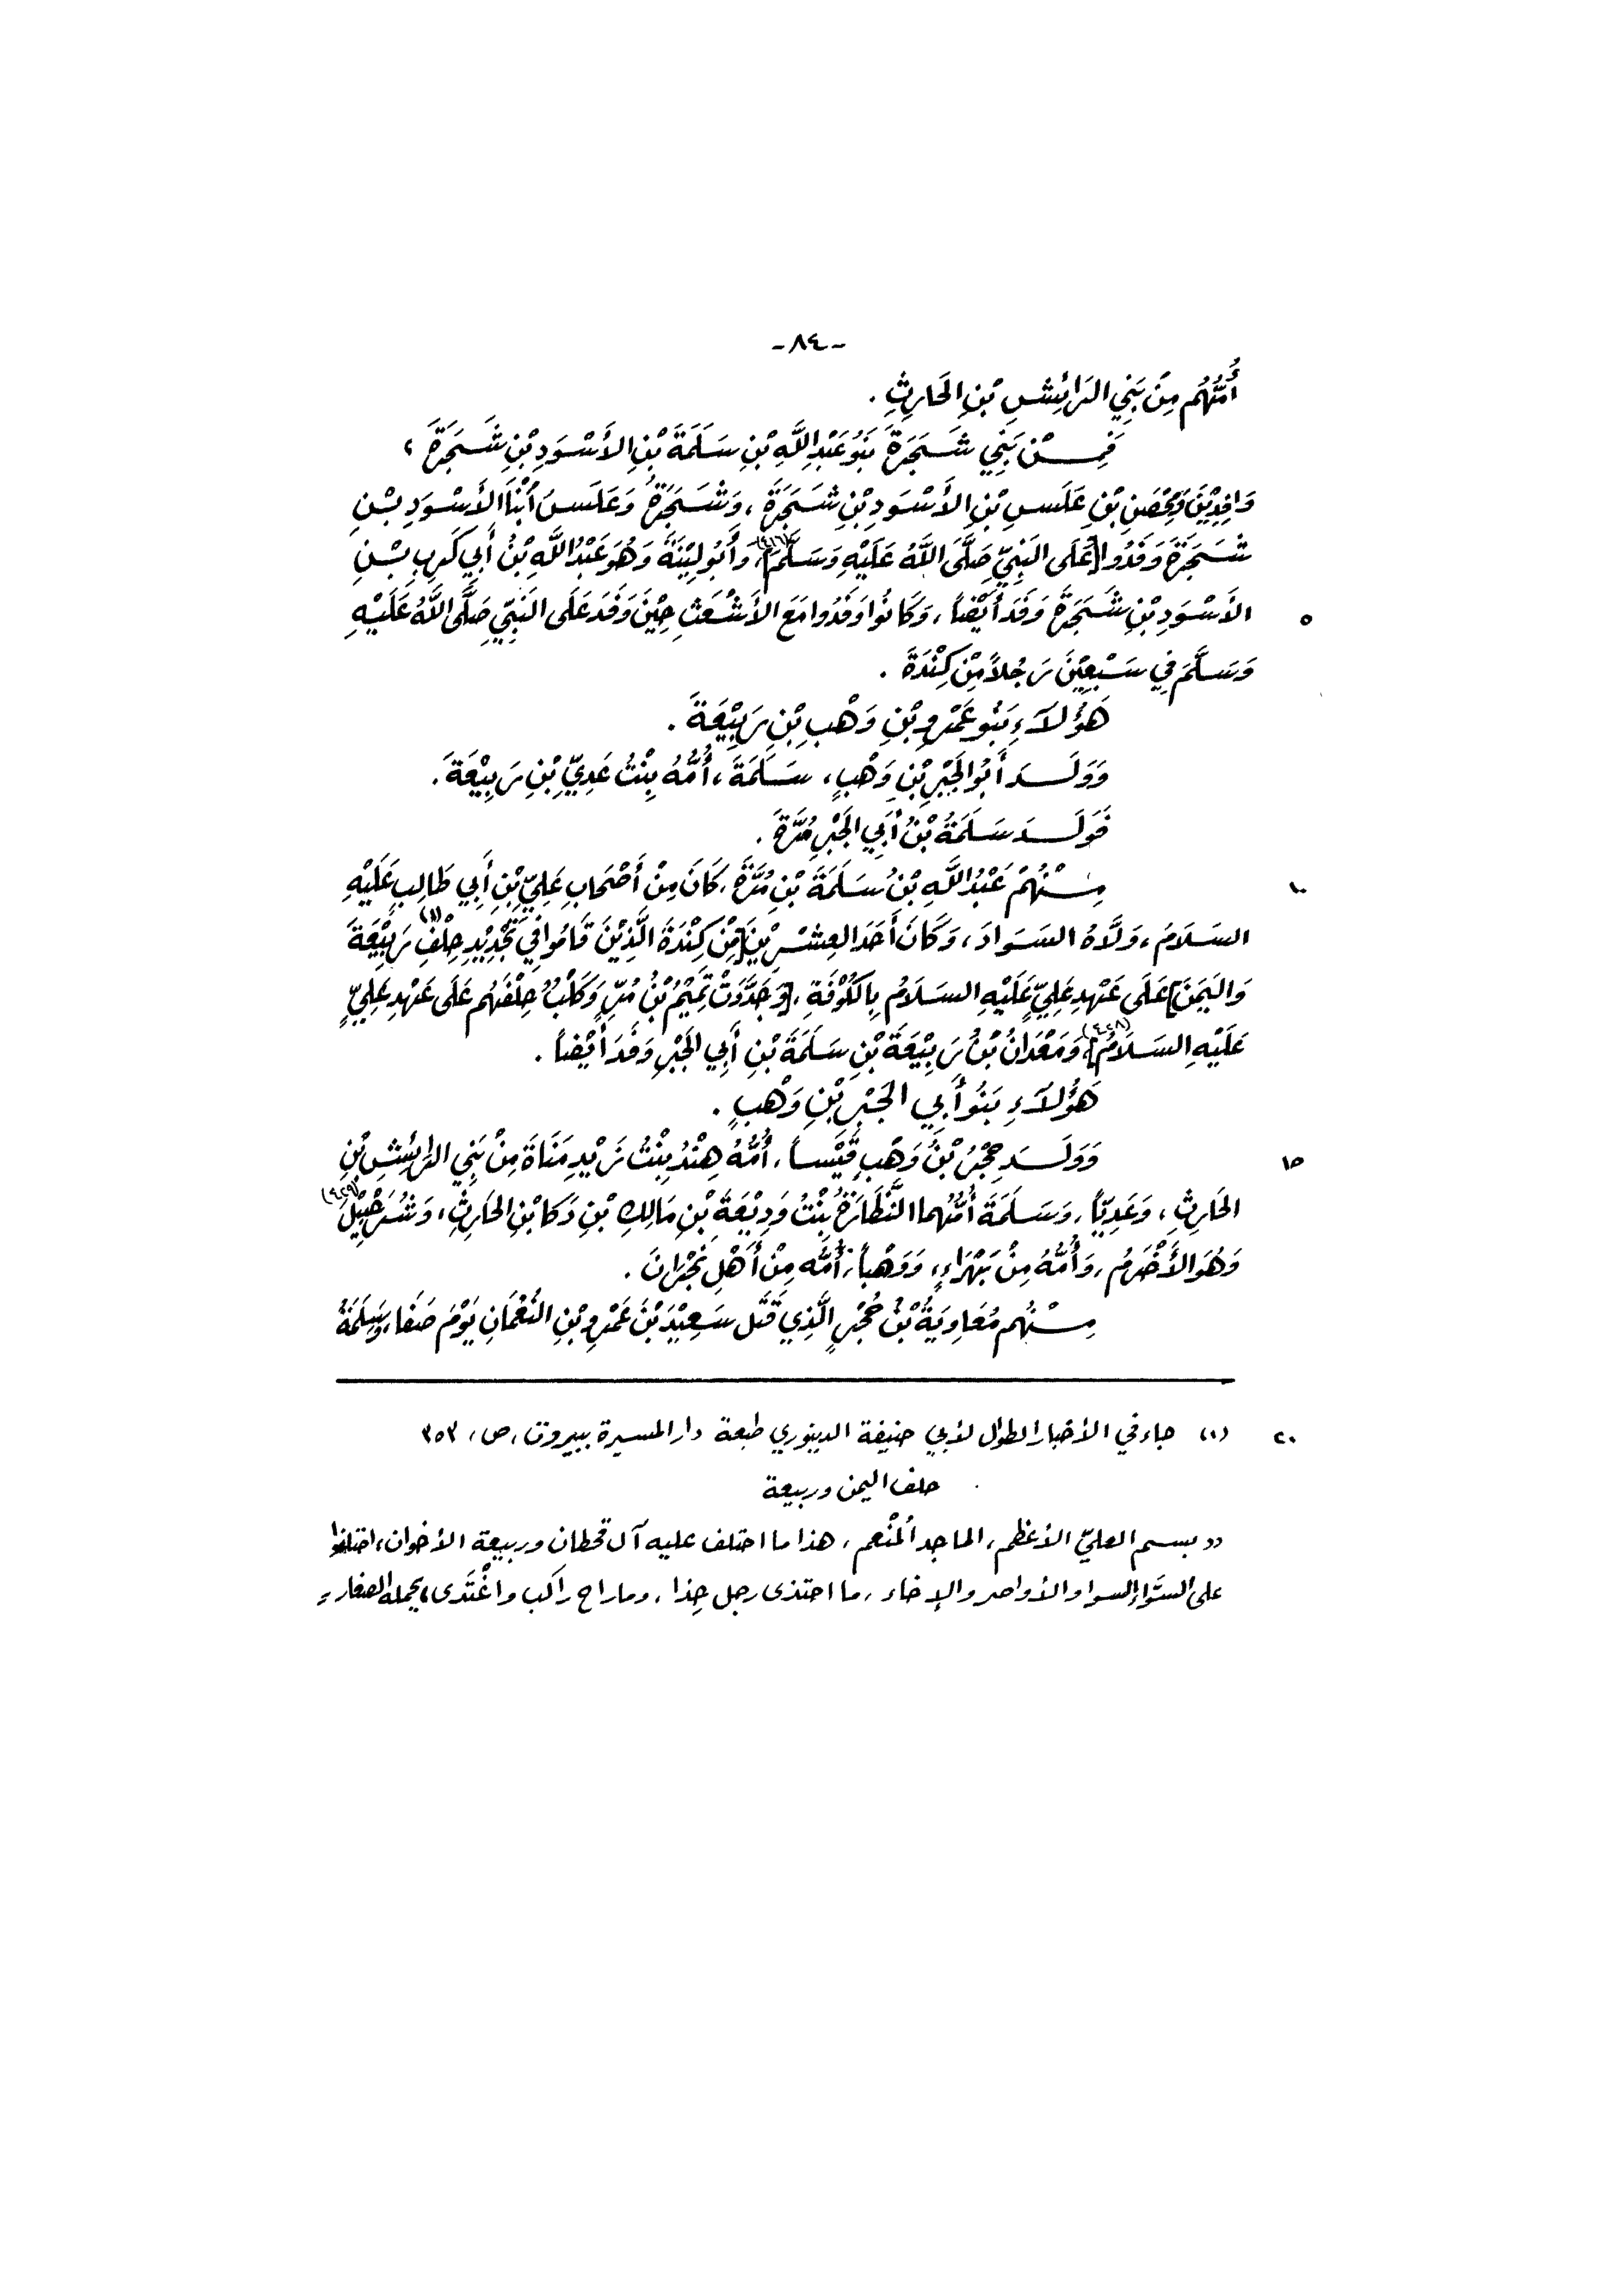 -٨٤-
أُمُّهُم مِنْ بَنِي الرَائِشِ بْنِ الحَارِثِ .
فَمِـنْ بَنِي شَـجَرَةَ بَنُو عَبْدِ اللَّهِ بْنِ سَلَمَةَ بْنِ الأَسْوَدِ بْنِ شَـجَرَةَ ،
وَافِدِيْنَ وَمِحْصَنِ بْنِ عَلَسِ بْنِ الأَسْوَدِ بْنِ شَجَرَةَ ، وَشَجَرَةُ وَعَلَسُ أَبْنَا الأَسْوَدِ بْـنِ
شَجَرَةَ وَفَدُوا [عَلَى النَبِيِّ صَلَّى اللَّهُ عَلَيْهِ وَسَلَّمَ]، وأَبُو لِيْنَةَ وَهُوَ عَبْدُ اللَّهِ بْنُ أَبِي كَرِبِ بْـنِ
٥ الأَسْوَدِ بْنِ شَجَرَةَ وَفَدَ أَيْضاً ، وَكَانُوا وَفَدُوا مَعَ الأَشْعَثِ حِيْنَ وَفَدَ عَلَى النَبِيِّ صَلَّى اللَّهُ عَلَيْهِ
وَسَلَّمَ فِي سَبْعِيْنَ رَجُلاً مِنْ كِنْدَةَ .
هَؤُلَآءِ بَنُو عَمْرِو بْنِ وَهْبِ بْنِ رَبِيْعَةَ .
وَوَلَـدَ أَبُو الجَبْرِ بْنِ وَهْبٍ ، سَـلَمَةَ ، أُمُّهُ بِنْتُ عَدِيِّ بْنِ رَبِيْعَةَ .
فَوَلَـدَ سَلَمَةُ بْنُ أَبِي الجَبْرِ مُرَّةَ .
١٠ مِـنْهُمْ عَبْدُ اللَّهِ بْنُ سَلَمَةَ بْنِ مُرَّةَ ، كَانَ مِنْ أَصْحَابِ عَلِيِّ بْنِ أَبِي طَالِبِ عَلَيْهِ
السَلَامُ ، وَلَّاهُ السَوَادَ ، وَكَانَ أَحَدَ العِشْـرِيْنَ [مِنْ كِنْدَةَ الَّذِيْنَ قَامُوا فِي تَجْدِيْدِ حِلْفِ (١) رَبِيْعَةَ
وَاليَمَنَ] عَلَى عَهْدِ عَلِيٍّ عَلَيْهِ السَلَامُ بِالكُوْفَةِ ، [وَجَدَّدَتْ تَمِيْمُ بْنُ مُرٍّ وَكَلْبُ حِلْفَهُم عَلَى عَهْدِ عَلِيٍّ
عَلَيْهِ السَلَامُ] (٤٢٨)، وَمَعْدَانُ بْنُ رَبِيْعَةَ بْنِ سَلَمَةَ بْنِ أَبِي الجَبْرِ وَفَدَ أَيْضاً .
هَؤُلَآءِ بَنُو أَبِي الجَبْرِ بْنِ وَهْبٍ .
١٥ وَوَلَـدَ حُجْرُ بْنُ وَهْبٍ قَيْساً ، أُمُّهُ هِنْدُ بِنْتُ زَيْدِ مَنَاةَ مِنْ بَنِي الرَائِشِ بْنِ
الحَارِثِ ، وَعَدِيّاً ، وَسَلَمَةَ أُمُّهُما النَّظَّارَةُ بِنْتُ وَدِيْعَةَ بْنِ مَالِكِ بْنِ دَكَا بْنِ الحَارِثِ ، وَشُرَحْبِيْلَ (٤٢٩)
وَهُوَ الأَخْرَمُ ، وَأُمُّهُ مِنْ بَهْرَاءٍ ، وَوَهْباً ، أُمُّه مِنْ أَهْلِ نَجْرَانَ .
مِـنْهُم مُعَاوِيَةُ بْنُ حُجْرٍ الَّذِي قَتَلَ سَعِيْدَ بْنَ عَمْرِو بْنِ النُعْمَانِ يَوْمَ صَنَعَا ، وَسَلَمَةُ
٢٠ (١) جاء في الأخبار الطوال لأبي حنيفة الدينوري طبعة دار المسيرة ببيروت ، ص ، ٣٥٣
حلف اليمن وربيعة
« بسم العليّ الأعظم ، الماجد المُنْعم ، هذا ما احتلف عليه آل قحطان وربيعة الأخوان ، احتلفوا
على السَوَّاء السوا والأواصر والإخاء ، ما احتذى رجل حِذا ، وما راح راكب واغْتَدى ، يحمله الصغار